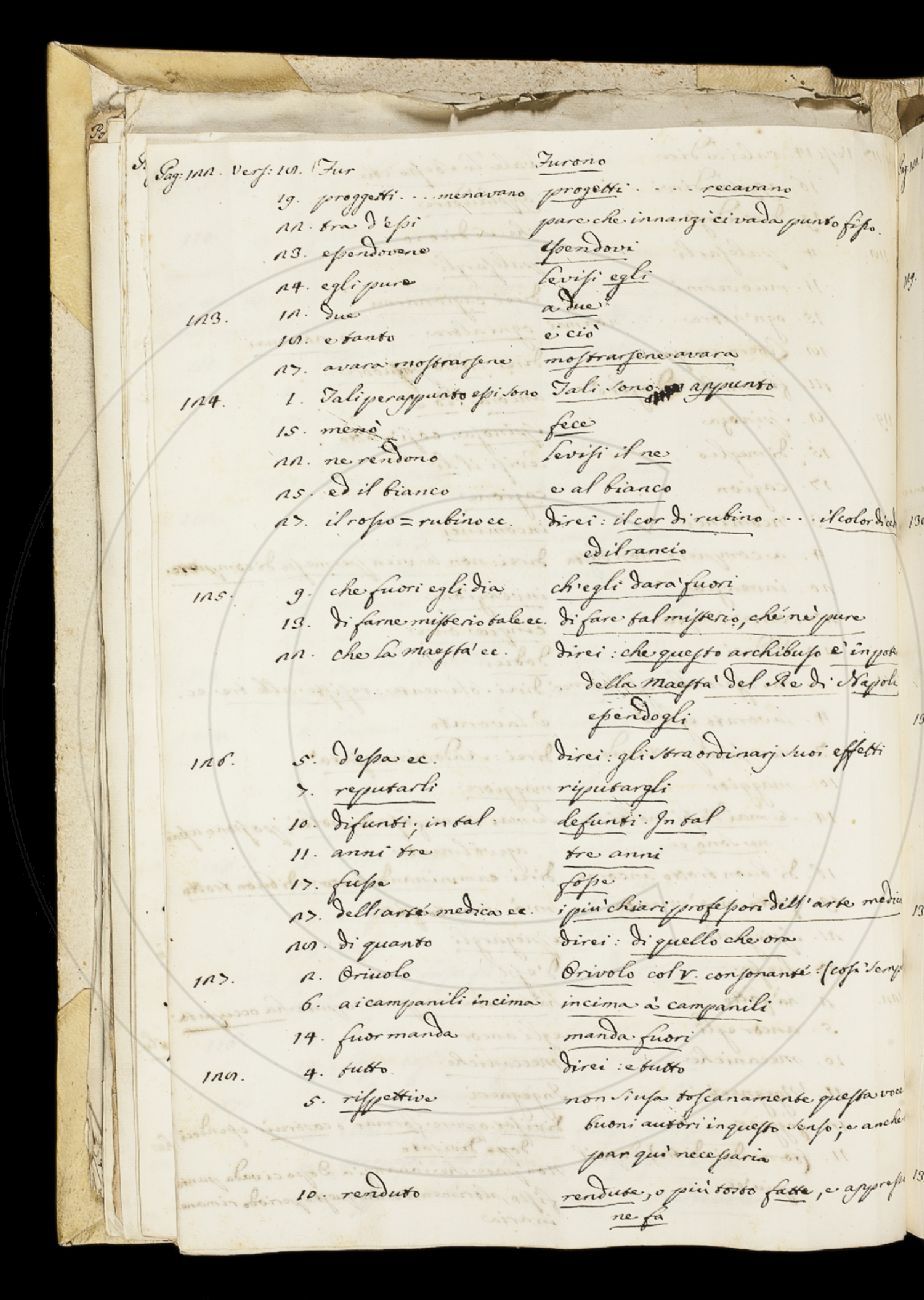 Pag: 122. Vers: 18. Fur Furono
19. proggetti . . . menavano progetti . . . . recavano
22. tra d'essi pare che innanzi ci vada punto fisso.
23. essendovene essendovi
24. egli pure levisi egli
123. 12. due a due
18. e tanto e ciò
27. avara mostrarsene mostrarsene avara
124. 1. Tali per appunto essi sono Tali sono appunto
15. menò fece
22. ne rendono levisi il ne
25. ed il bianco e al bianco
27. il rosso = rubino ec. direi: il cor di rubino . . . . il color di
ed il rancio
125. 9. che fuori egli dia ch'egli darà fuori
13. di farne misterio tale ec. di fare tal misterio, ché nè pure
22. che la Maestà ec. direi: che questo archibuso è in pote
della Maestà del Re di Napoli
essendogli
126. 5. d'essa ec. direi: gli straordinarj suoi effetti
7. reputarli riputargli
10. difunti; in tal defunti. In tal
11. anni tre tre anni
17. fusse fosse
27. dell'arte medica ec. i più chiari professori dell'arte medica
28. di quanto direi: di quello che ora
127. 2. Orivolo Orivolo col v. consonante. (così semp
6. a i campanili incima incima à campanili
14. fuor manda manda fuori
128. 4. tutto direi: e tutto
5. rispettive non s'usa toscanamente questa voce
buoni autori in questo senso; e anche
par quì necessaria
10. renduto rendute, o più tosto fatte, e appresso
ne fa